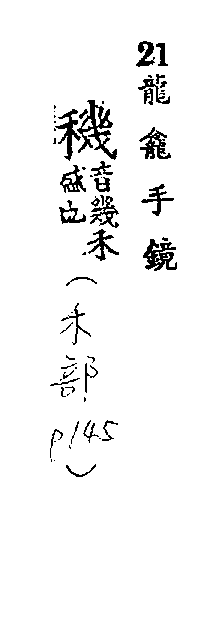 21龍龕手鏡
穖音幾禾盛也(禾部p145)